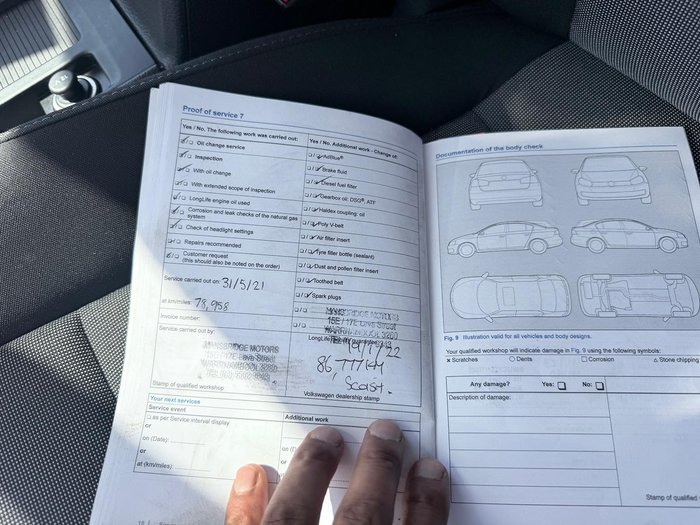 Proof of service 7
Yes / No. The following work was carried out:
Oil change service
Inspection
With oil change
With extended scope of inspection
LongLife engine oil used
Corrosion and leak checks of the natural gas
system
Check of headlight settings
Repairs recommended
Customer request
(this should also be noted on the order)
Service carried out on: 31/5/21
at km/miles: 78,958
Invoice number:
Service carried out by:
MANSBRIDGE MOTORS
Stamp of qualified workshop
Yes / No. Additional work - Change of:
AdBlue®
Brake fluid
Diesel fuel filter
Gearbox oil: DSG®, ATF
Haldex coupling; oil
Poly V-belt
Air filter insert
Tyre filler bottle (sealant)
Dust and pollen filter insert
Toothed belt
Spark plugs
MANSBRIDGE MOTORS
WARRNAMBOOL 3280
86,777 KM
Volkswagen dealership stamp
Your next services
Service event
as per Service interval display
or
on (Date):
or
at (km/miles):
Additional work
Documentation of the body check
Fig. 9 Illustration valid for all vehicles and body designs.
Your qualified workshop will indicate damage in Fig. 9 using the following symbols:
x Scratches ○ Dents □ Corrosion △ Stone chipping
Any damage? Yes: No:
Description of damage:
Stamp of qualified